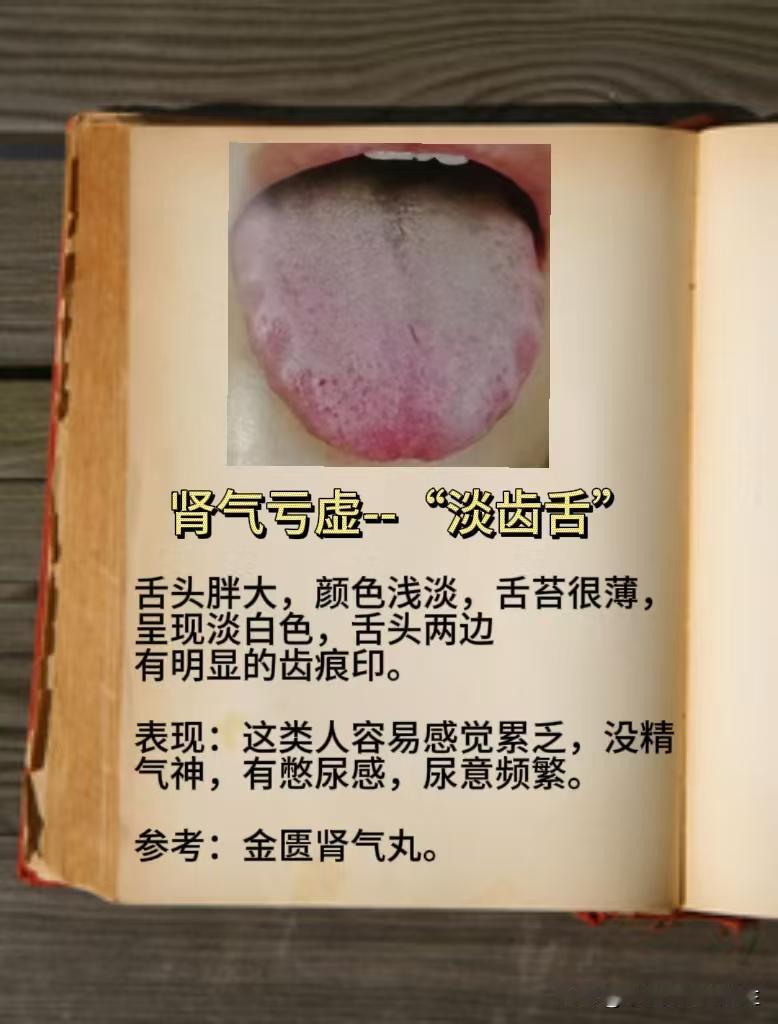 肾气亏虚--“淡齿舌”
舌头胖大，颜色浅淡，舌苔很薄，
呈现淡白色，舌头两边
有明显的齿痕印。
表现：这类人容易感觉累乏，没精
气神，有憋尿感，尿意频繁。
参考：金匮肾气丸。